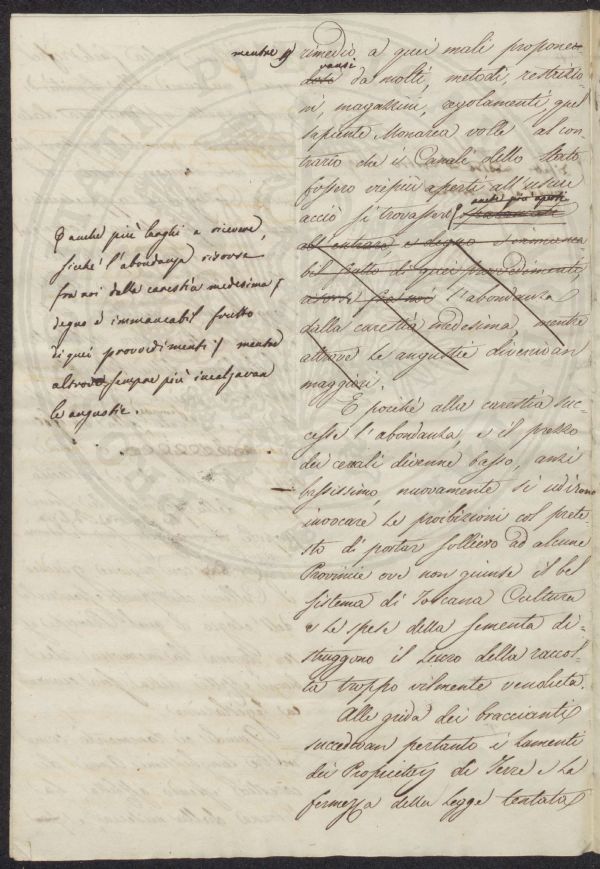 mentre rimedio a quei mali propone-
vansi
da molti, metodi, restrizio-
ni, magazzini, regolamenti, quel
sapiente Monarca volle al con-
trario che i Canali dello Stato
fossero vie più aperti all'uscire
anche più aperti
acciò si trovassero
all'entrare, e degno
bel frutto di quei provvedimenti,
l'abondanza
dalla carestia medesima, mentre
altrove le angustie divenivan
maggiori.
E poiché alla carestia suc-
cesse l'abondanza, e il prezzo
dei cereali divenne basso, anzi
bassissimo, nuovamente si udirono
invocare le proibizioni col prete-
sto di portar sollievo ad alcune
Provincie ove non giunse il bel
sistema di Toscana Cultura
e le spese della sementa di-
struggono il della raccol-
ta troppo vilmente venduta.
Alle grida dei braccianti
succedevan pertanto i lamenti
dei di Terre e la
fermezza della legge tentata
anche più larghi a ricevere,
sicché l'abondanza risorse
fra noi dalla carestia medesima
degno e immancabil frutto
di quei provvedimenti mentre
altrove sempre più incalzavan
le angustie.